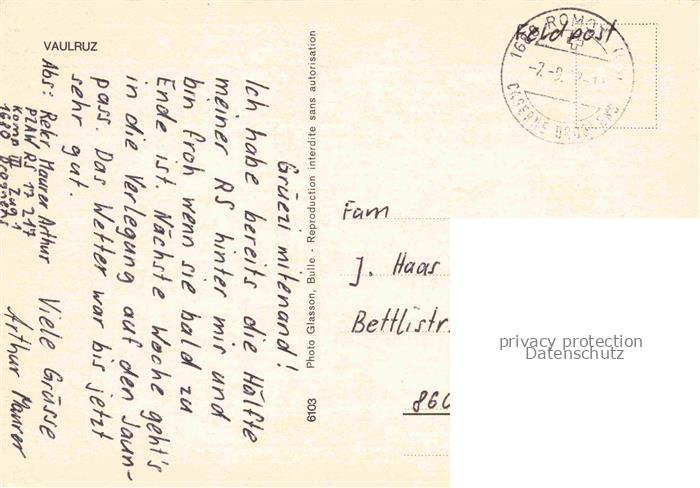 VAULRUZ
Grüezi mitenand!
Ich habe bereits die Hälfte
meiner RS hinter mir und
bin froh wenn sie bald zu
Ende ist. Nächste Woche geht's
in die Verlegung auf den Jaun-
pass. Das Wetter war bis jetzt
sehr gut.
Viele Grüsse
Arthur Maurer
Abs: Rekr Maurer Arthur
PzAw RS 17 217
Komp III Zug 1
1680 Drognens
6103 Photo Glasson, Bulle - Reproduction interdite sans autorisation
Feldpost
1680 ROMONT
CASERNE DROGNENS
Fam
J. Haas
Bettlistr.
860
privacy protection
Datenschutz